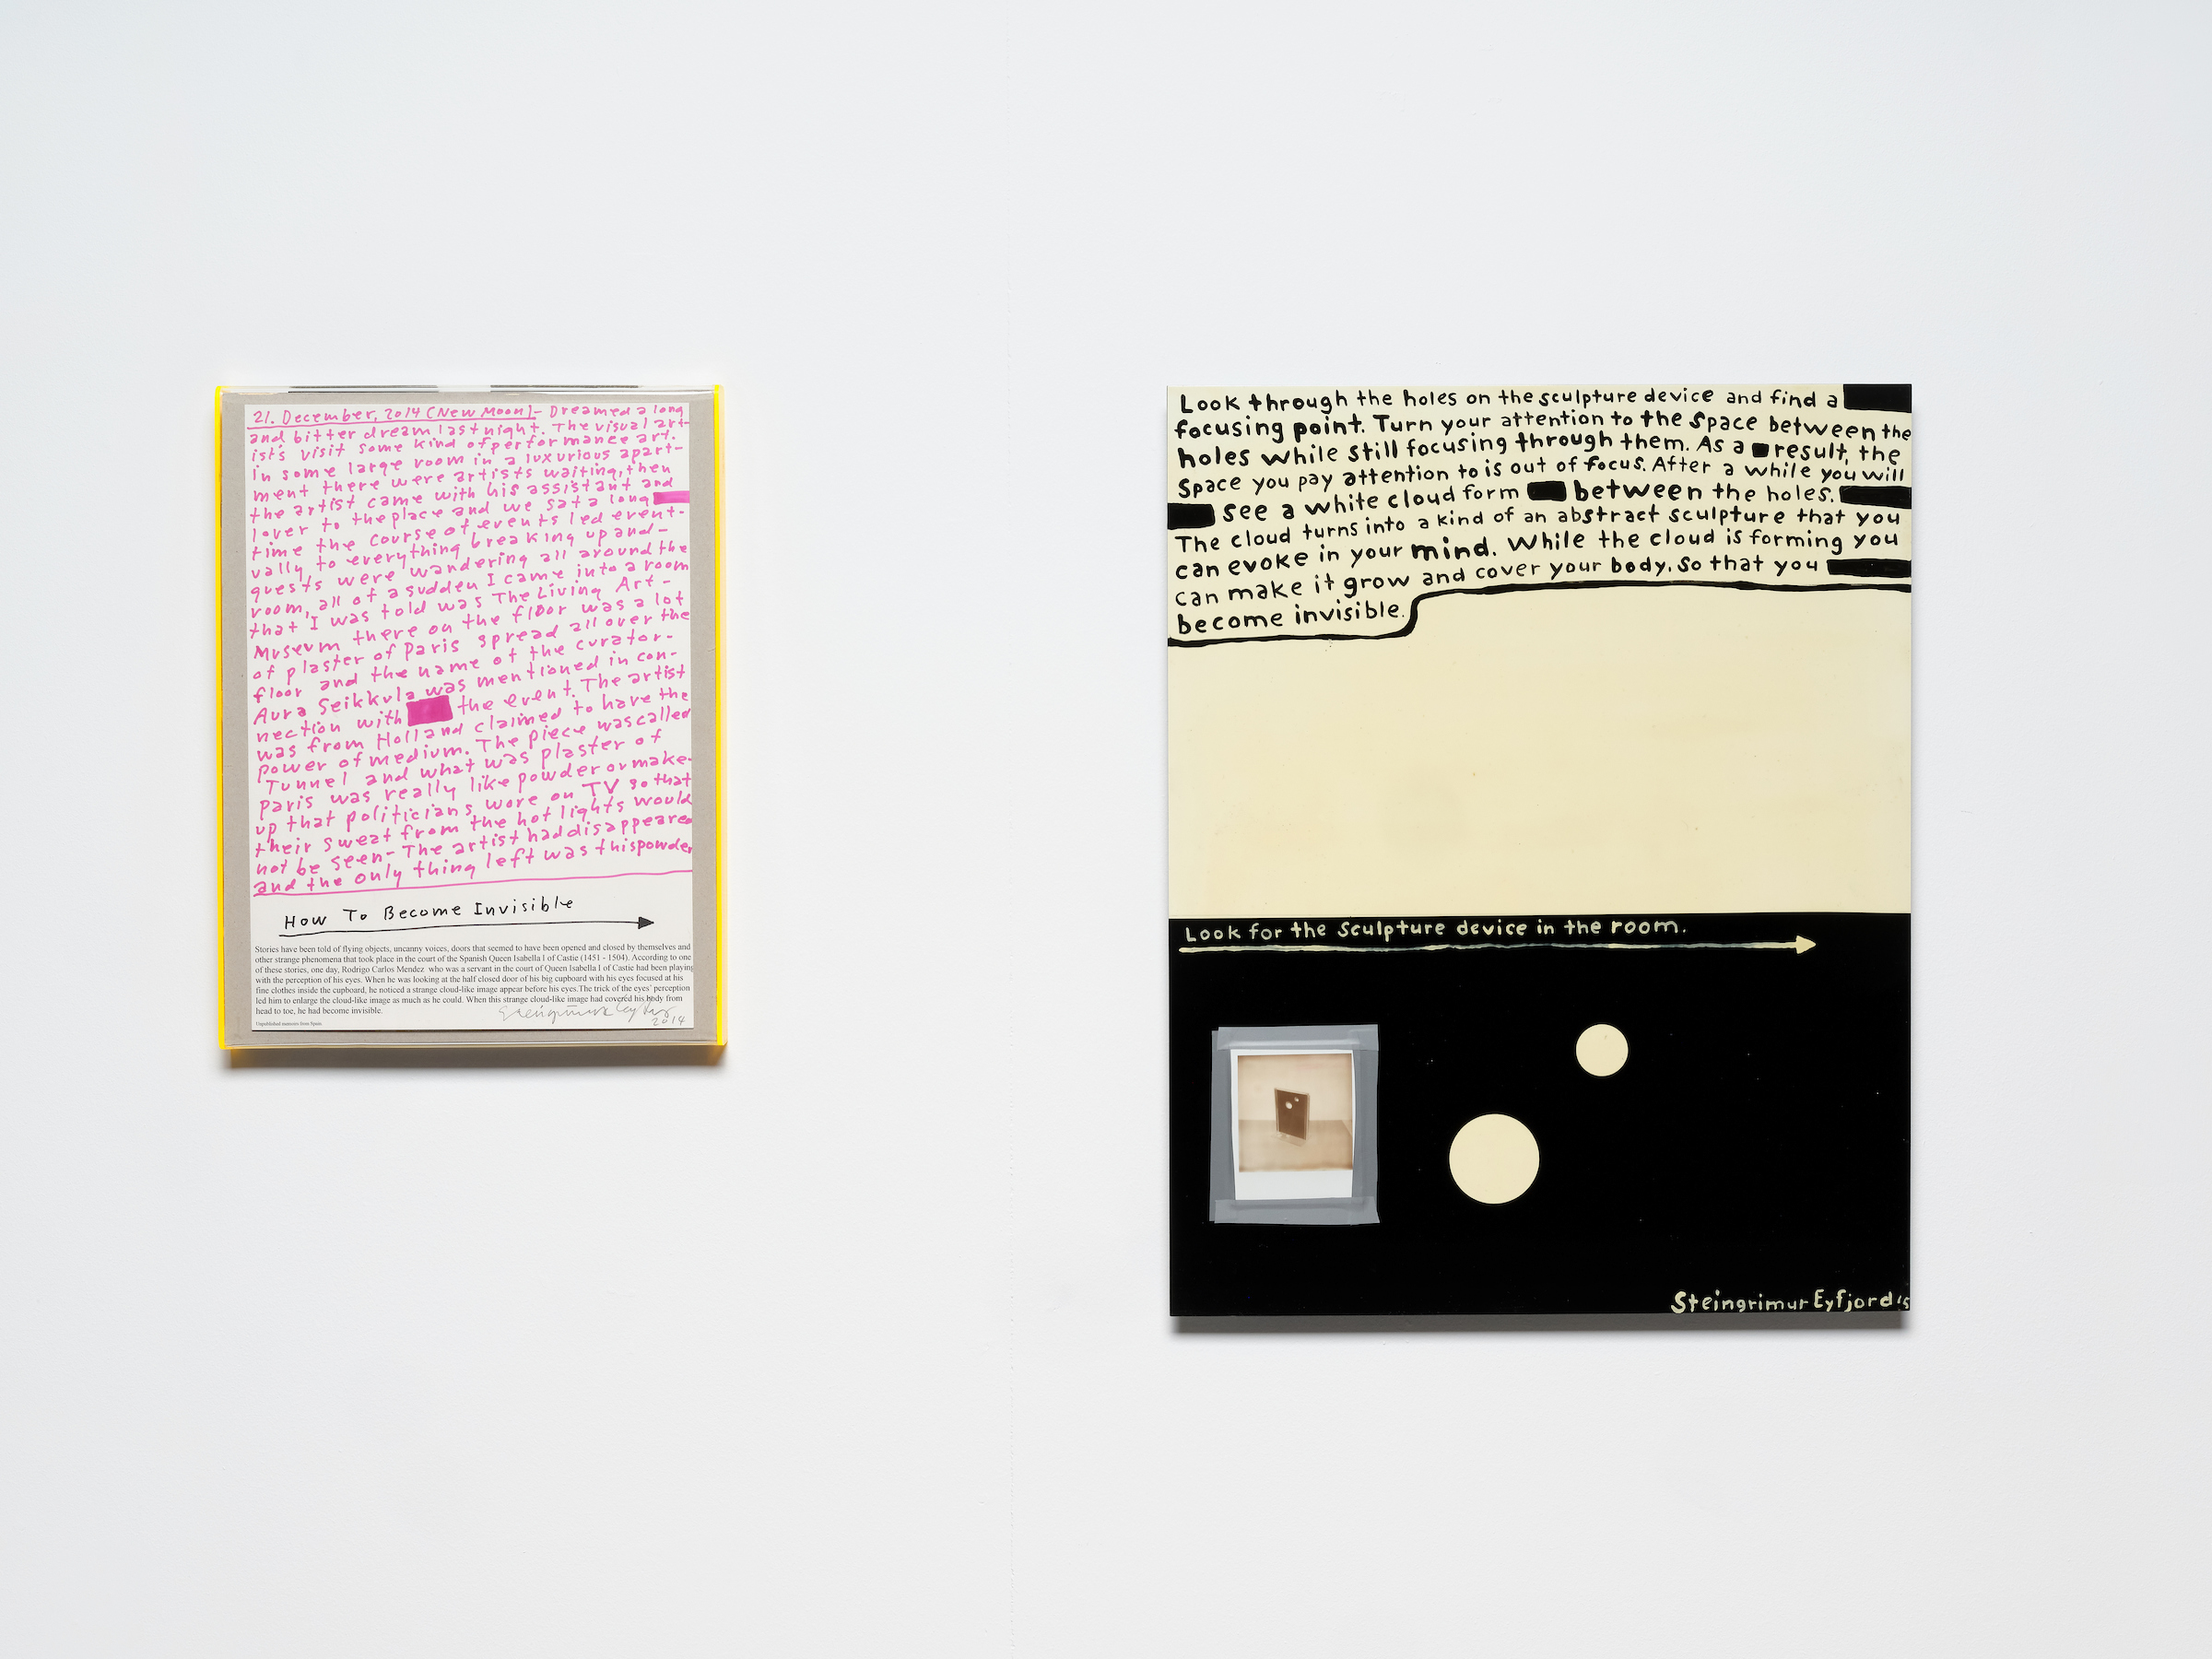 21. December, 2014 (New Moon)- Dreamed a long
and bitter dream last night. The visual art-
ist's visit some kind of performance art.
In some large room in a luxurious apart-
ment there were artists waiting, then
the artist came with his assistant and
lover to the place and we sat a long
time the course of events led event-
ually to everything breaking up and-
guests were wandering all around the
room, all of a sudden I came into a room
that I was told was The Living Art-
Museum there on the floor was a lot
of plaster of Paris spread all over the
floor and the name of the curator-
Aura Seikkula was mentioned in con-
nection with the event. The artist
was from Holland claimed to have the
power of medium. The piece was called
Tunnel and what was plaster of
Paris was really like powder or make-
up that politicians wore on TV so that
their sweat from the hot lights would
not be seen- The artist had disappeared
and the only thing left was this powder
How To Become Invisible
Stories have been told of flying objects, uncanny voices, doors that seemed to have been opened and closed by themselves and
other strange phenomena that took place in the court of the Spanish Queen Isabella I of Castie (1451 - 1504). According to one
of these stories, one day, Rodrigo Carlos Mendez who was a servant in the court of Queen Isabella I of Castie had been playing
with the perception of his eyes. When he was looking at the half closed door of his big cupboard with his eyes focused at his
fine clothes inside the cupboard, he noticed a strange cloud-like image appear before his eyes.The trick of the eyes' perception
led him to enlarge the cloud-like image as much as he could. When this strange cloud-like image had covered his body from
head to toe, he had become invisible.
Unpublished memoirs from Spain.
2014
Look through the holes on the sculpture device and find a
focusing point. Turn your attention to the space between the
holes while still focusing through them. As a result, the
space you pay attention to is out of focus. After a while you will
see a white cloud form between the holes.
The cloud turns into a kind of an abstract sculpture that you
can evoke in your mind. While the cloud is forming you
can make it grow and cover your body. So that you
become invisible.
Look for the sculpture device in the room.
Steingrimur Eyfjord '5